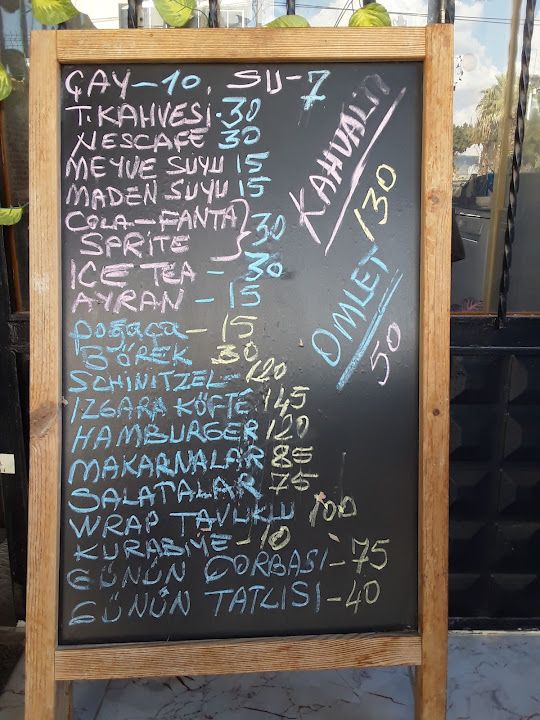 ÇAY-10, SU-7
T.KAHVESİ.30
NESCAFE 30
MEYVE SUYU 15
MADEN SUYU 15
COLA-FANTA
SPRİTE } 30
ICE TEA - 30
AYRAN - 15
poğaça - 15
BÖREK 30
SCHINITZEL-120
IZGARA KÖFTE 145
HAMBURGER 120
MAKARNALAR 85
SALATALAR 75
WRAP TAVUKLU 100
KURABİYE - 10
GÜNÜN ÇORBASI-75
GÜNÜN TATLISI-40
KAHVALTI
130
OMLET
50